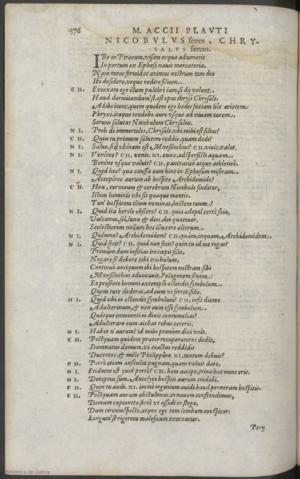 376 M. ACCII PLAVTI
NICOBVLVS senex, CHRY-
SALVS seruus.
IBo in Piraeum, visam ecquae aduenerit
In portum ex Epheso nauis mercatoria.
Nam meus formidat animus nostrum tam diu
Ibi desidere, neque redire filium.
CH. Extexam ego illum pulchre iam, si dij volunt.
Haud dormitandum'st. opus chryso Chrysalo.
Adibo hunc, quem quidem ego hodie faciam hic arietem
Phryxi. itaque tondebo auro vsque ad viuam cutem.
Seruus salutat Nicobulum Chrysalus.
NI. Proh di immortales, Chrysale, vbi mihi est filius?
CH. Quin tu primum salutem reddis, quam dedi?
NI. Salue. sed vbinam est Mnesilochus? CH. viuit, valet.
NI. Venitne? CH. venit. NI. euax, adspersisti aquam.
Benene vsque valuit? CH. pancratice atque athletice.
NI. Quid hoc? qua causa eum hinc in Ephesum miseram,
Accepitne aurum ab hospite Archidemide?
CH. Heu, cor meum & cerebrum Nicobule finditur,
Istius hominis vbi fit quaque mentio.
Tun' hospitem illum nominas, hostem tuum?
NI. Quid ita
CH. quia
Vulcanus, sol, luna & dies, dei quatuor,
Scelestiorem nullum
NI. Quamne Archidemidem? CH. quam, inquam, Archidemidem.
NI. Quid fecit? CH. quid non fecit? quin tu id me rogas?
Primum dum infitias ire coepit filio,
Negare se debere tibi triobulum.
Continuo antiquum hospitem nostrum sibi
Mnesilochus aduocauit, Pelagonem senem.
Eo praesente homini extemplo ostendit symbolum,
Quem tute dederas, ad eum vt ferret filio.
NI. Quid vbi ei ostendit symbolum? CH. infit dicere
Adulterinum, & non eum esse symbolum.
Quotque innocenti ei dixit contumelias?
Adulterare eum aiebat rebus ceteris.
NI. Habetin' aurum? id mihi primum dici volo.
CH. Postquam quidem praetor recuperatores dedit,
Damnatus demum, vi coactus reddidit
Ducentos, & mille Philippûm. NI. tantum debuit?
CH. Porro etiam ausculta pugnam, quam voluit dare.
NI. Etiamne est quid porro? CH. hem accipe, trina haec nunc erit.
NI. Deceptus sum, Autolyco hospiti aurum credidi.
CH. Quin tu audi. NI. immo ingenium auidi haud pernoram hospitis.
CH. Postquam aurum abstulimus, in nauem conscendimus,
Domum cupientes. forte vt assedi in stega,
Dum circumspecto, atque ego lembum conspicor
Longum strigorem maleficum exornarier.
Perij